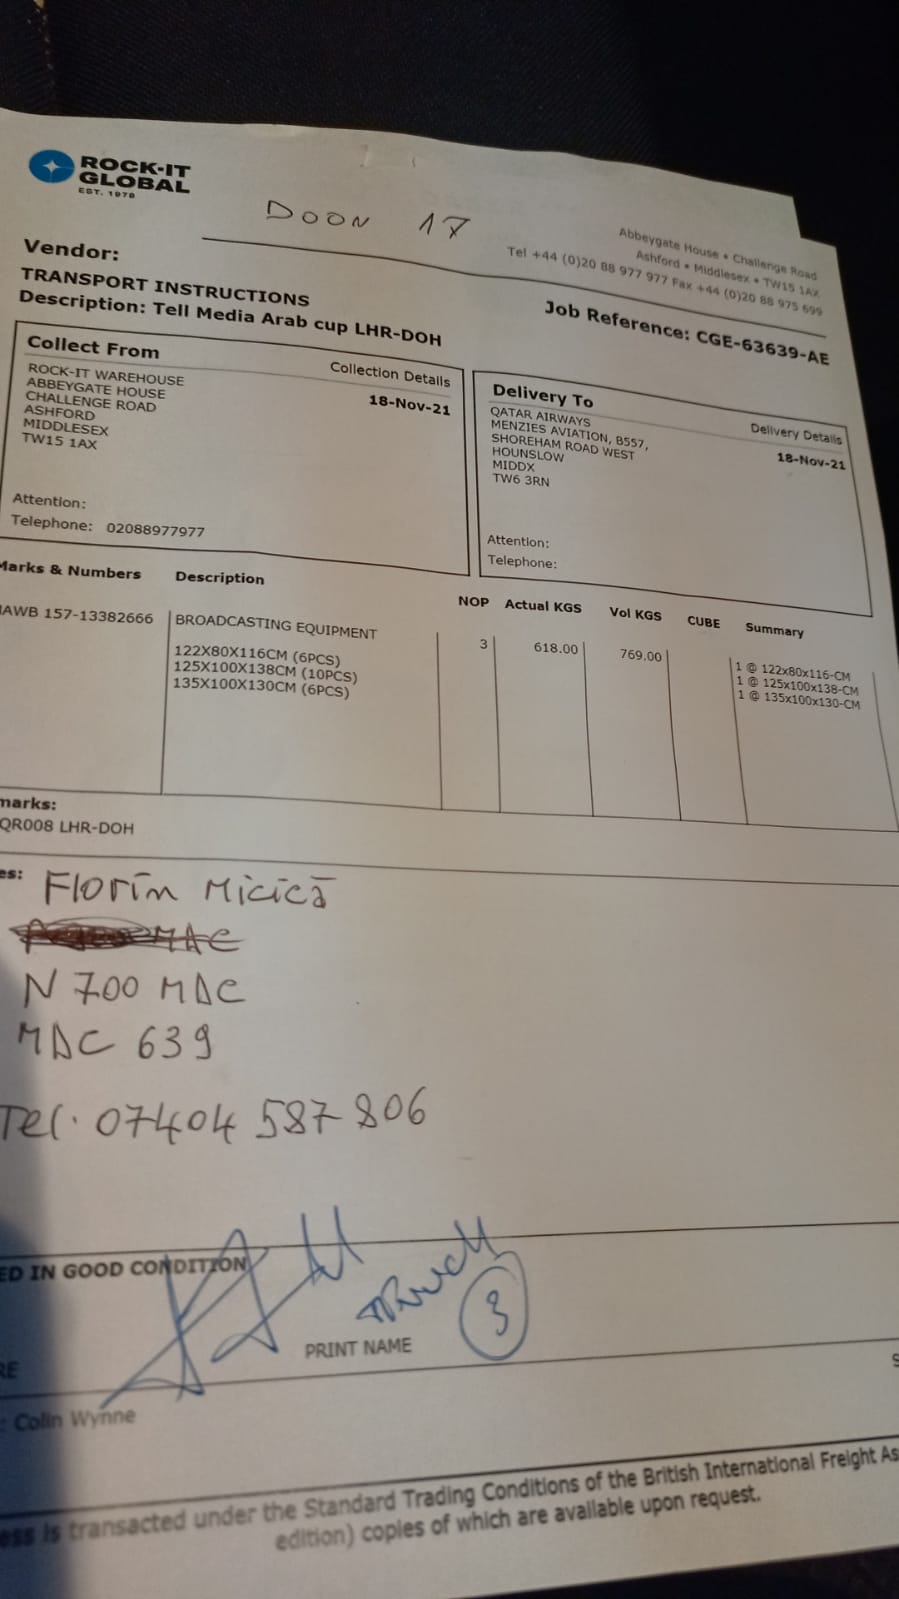 ROCK-IT
GLOBAL
EST. 1978
DOON 17
Abbeygate House • Challenge Road
Ashford • Middlesex • TW15 1AX
Tel +44 (0)20 88 977 977 Fax +44 (0)20 88 975 699
Vendor:
TRANSPORT INSTRUCTIONS
Description: Tell Media Arab cup LHR-DOH
Job Reference: CGE-63639-AE
Collect From
Collection Details
ROCK-IT WAREHOUSE
18-Nov-21
ABBEYGATE HOUSE
CHALLENGE ROAD
ASHFORD
MIDDLESEX
TW15 1AX
Attention:
Telephone: 02088977977
Delivery To
Delivery Details
QATAR AIRWAYS
18-Nov-21
MENZIES AVIATION, B557,
SHOREHAM ROAD WEST
HOUNSLOW
MIDDX
TW6 3RN
Attention:
Telephone:
Marks & Numbers Description NOP Actual KGS Vol KGS CUBE Summary
AWB 157-13382666 BROADCASTING EQUIPMENT 3 618.00 769.00
122X80X116CM (6PCS) 1 @ 122x80x116-CM
125X100X138CM (10PCS) 1 @ 125x100x138-CM
135X100X130CM (6PCS) 1 @ 135x100x130-CM
marks:
QR008 LHR-DOH
es: Florin Micică
N 700 MAC
MAC 639
Tel. 07404 587 806
ED IN GOOD CONDITION
3
PRINT NAME
RE
S
: Colin Wynne
ess is transacted under the Standard Trading Conditions of the British International Freight As
edition) copies of which are available upon request.